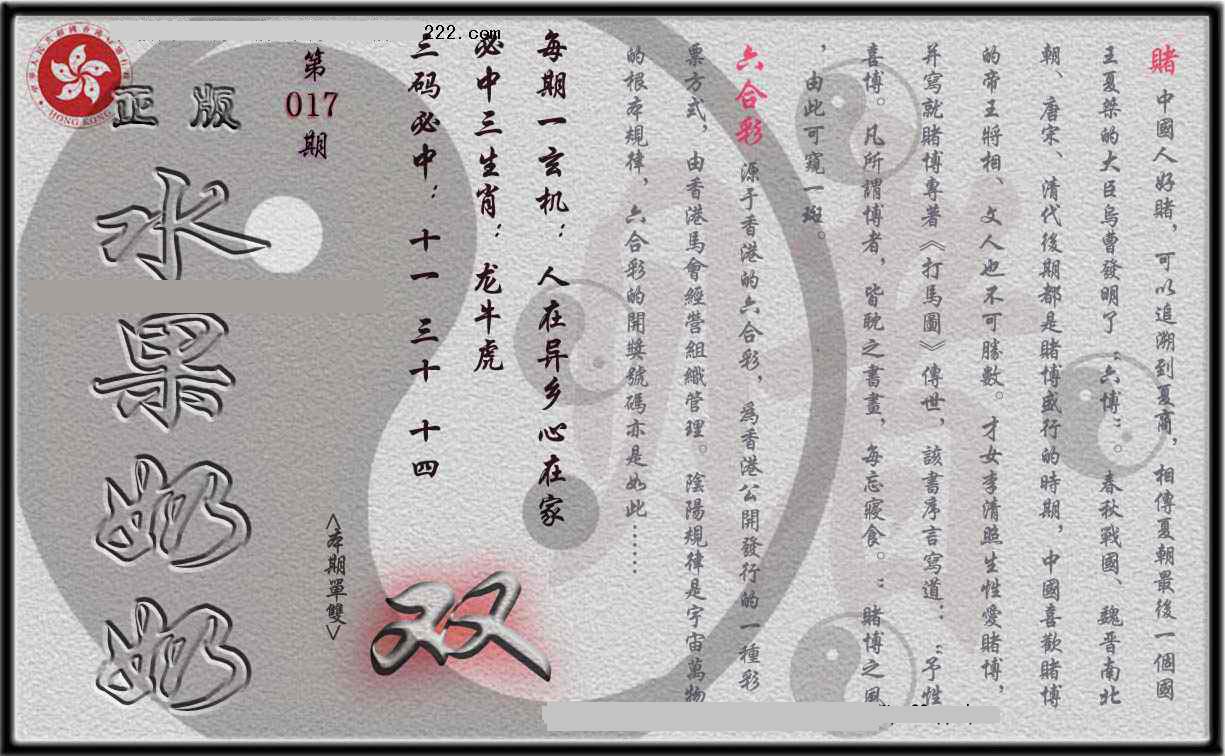 222.com
賭 中國人好賭，可以追溯到夏商，相傳夏朝最後一個國
王夏桀的大臣烏曹發明了“六博”。春秋戰國、魏晋南北
朝、唐宋、清代後期都是賭博盛行的時期，中國喜歡賭博
的帝王將相、文人也不可勝數。才女李清照生性愛賭博，
并寫就賭博專著《打馬圖》傳世，該書序言寫道：“予性
喜博。凡所謂博者，皆耽之書畫，每忘寢食。“賭博之風
，由此可窺一斑。
六合彩 源于香港的六合彩，爲香港公開發行的一種彩
票方式，由香港馬會經營組織管理。陰陽規律是宇宙萬物
的根本規律，六合彩的開獎號碼亦是如此……
每期一玄机：人在异乡心在家
必中三生肖：龙牛虎
三码必中：十一 三十 十四
第
017
期
<本期單雙>
双
正版
水果奶奶
HONG KONG